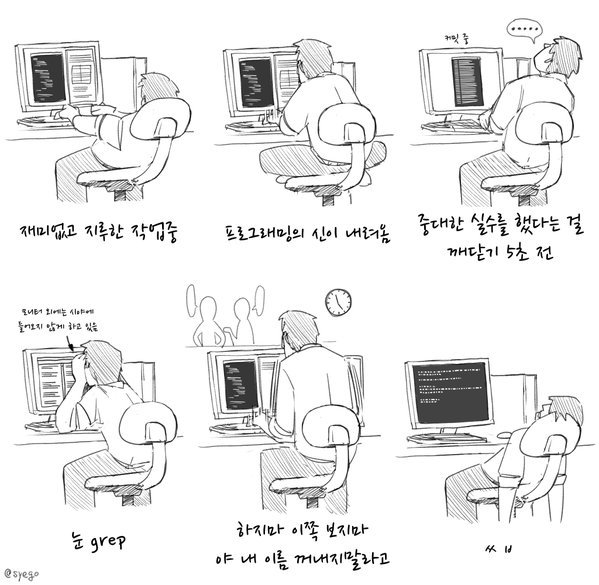 커밋 중
•••••
재미없고 지루한 작업중
프로그래밍의 신이 내려옴
중대한 실수를 했다는 걸
깨닫기 5초 전
모니터 외에는 시야에
들어오지 않게 하고 있음
눈 grep
하지마 이쪽 보지마
야 내 이름 꺼내지말라고
ㅆㅂ
@syego